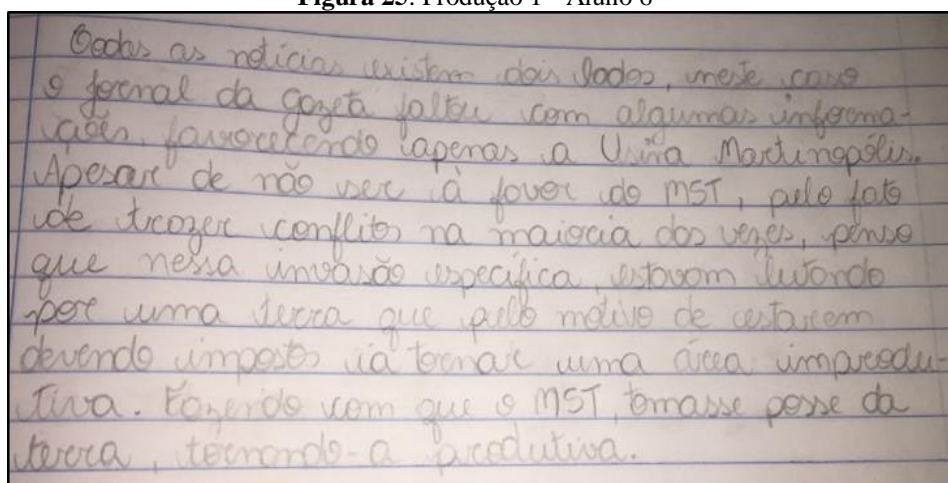 Figura 25: Produção 1 – Aluno 6
Todas as notícias existem dois lados, neste caso
o jornal da gazeta faltou com algumas informa-
ções, favorecendo apenas a Usina Martinopólis.
Apesar de não ser à favor do MST, pelo fato
de trazer conflitos na maioria das vezes, penso
que nessa invasão específica, estavam lutando
por uma terra que pelo motivo de estarem
devendo impostos ia tornar uma área improdu-
tiva. Fazendo com que o MST, tomasse posse da
terra, tornando-a produtiva.